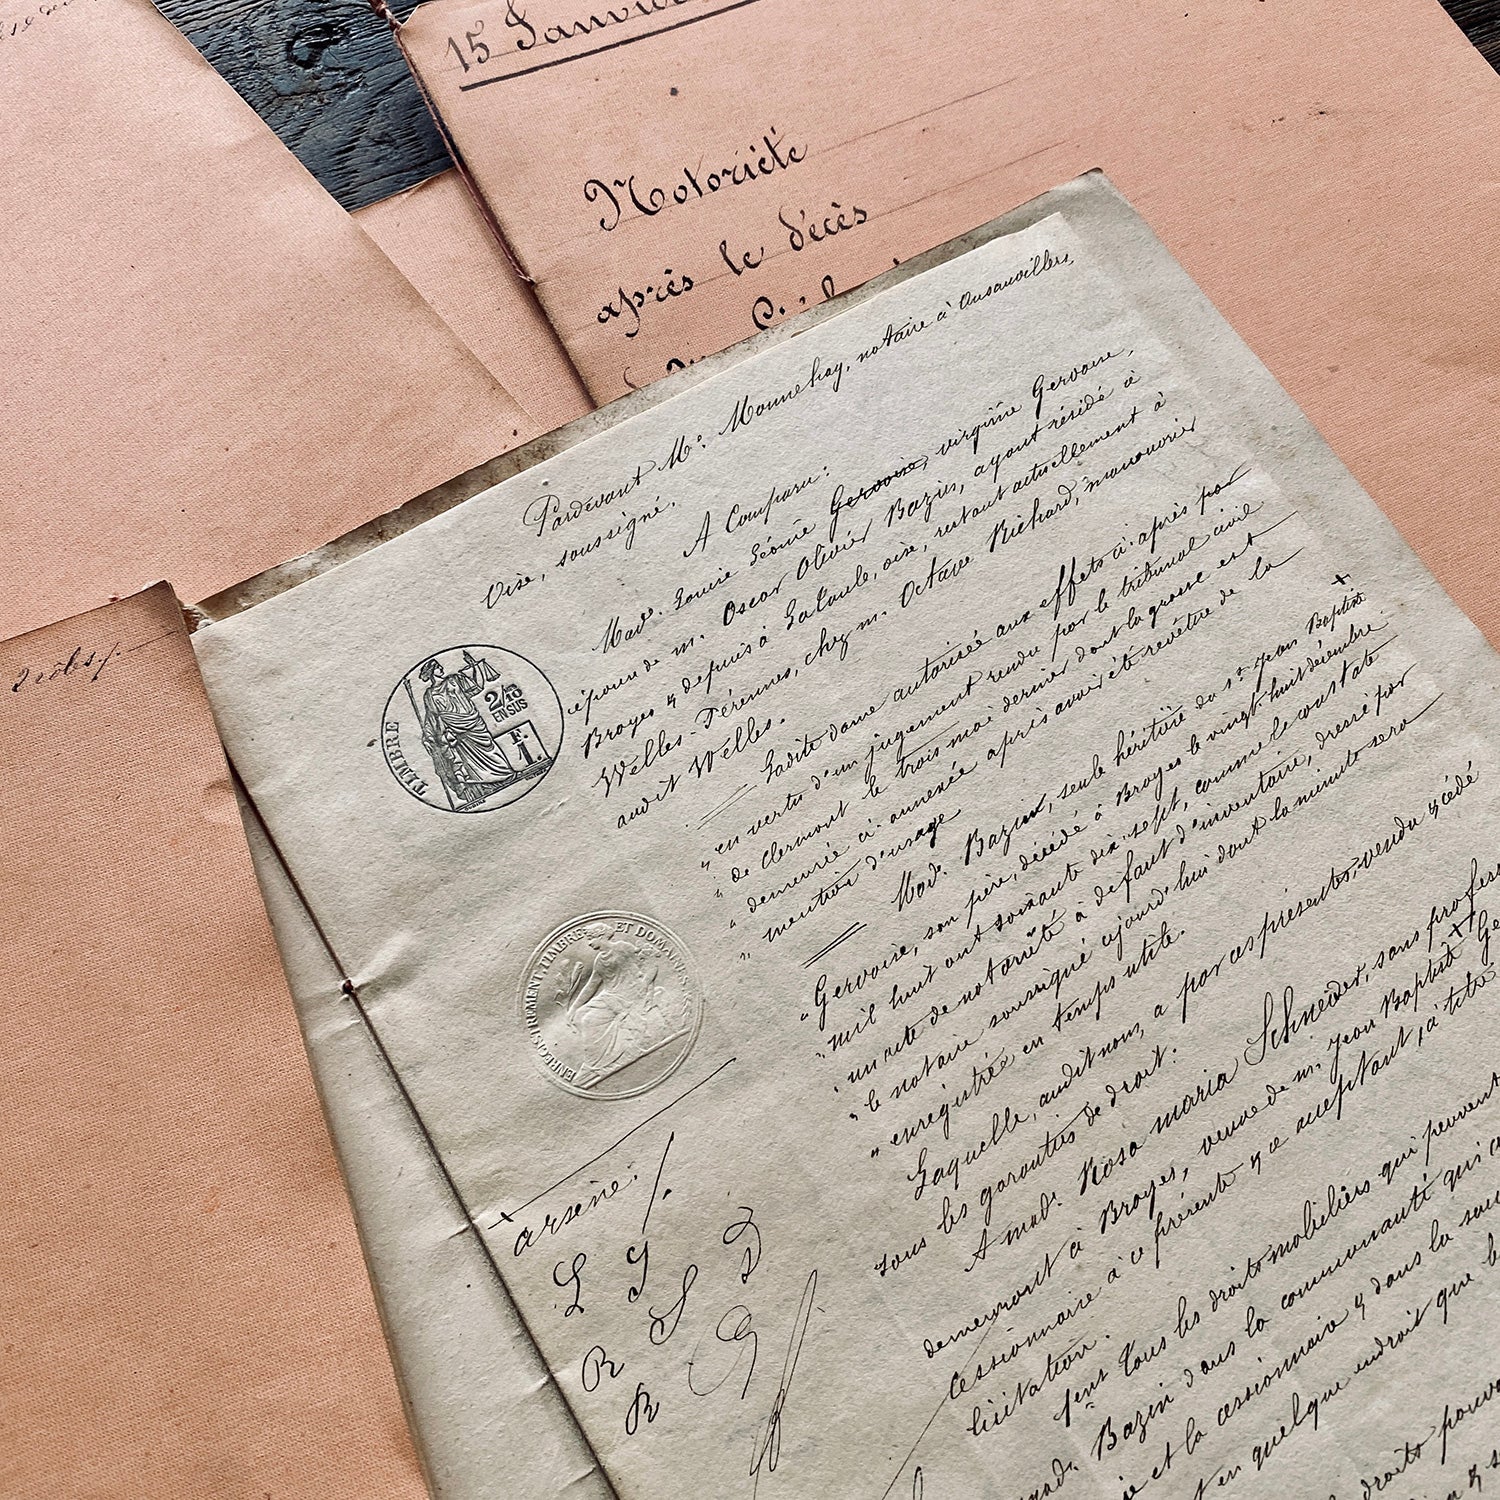 15 Janvier
Notoriété
après le décès
2 rôles
Pardevant Me. Monnehay, notaire à Ansauvillers
Oise, soussigné.
A Comparu:
Mad. Louise Léonie Gervoise, virginie Gervoise,
épouse de m. Oscar Olivier Bazin, ayant résidé à
Broyes & depuis à La Taule, oise, restant actuellement à
Welles-Pérennes, chez m. Octave Richard, manouvrier
audit Welles.
Ladite dame autorisée aux effets ci-après par
" en vertu d'un jugement rendu par le tribunal civil
" de Clermont le trois mai dernier dont la grosse est
" demeurée ci-annexée après avoir été revêtue de la
" mention d'usage
Mad. Bazin, seule héritière du sr. Jean Baptiste +
" Gervoise, son père, décédé à Broyes le vingt-huit décembre
" mil huit cent soixante dix-sept, comme le constate
" un acte de notoriété à défaut d'inventaire, dressé par
" le notaire soussigné aujourd'hui dont la minute sera
" enregistrée en temps utile.
Laquelle, audit nom, a par ces présentes, vendu & cédé
sous les garanties de droit:
A mad. Rosa maria Schneider, sans profess
demeurant à Broyes, veuve de m. Jean Baptiste + Ge
cessionnaire à ce présente & ce acceptant, à titre
licitation.
Tous les droits mobiliers qui peuvent
mad. Bazin dans la communauté qui a
et la cessionnaire & dans la suc
et en quelque endroit que le
droits pouva
TIMBRE
2/10 EN SUS
F. 1.
ENREGISTREMENT, TIMBRE ET DOMAINES
+ arsène.
L J
R S D
R G